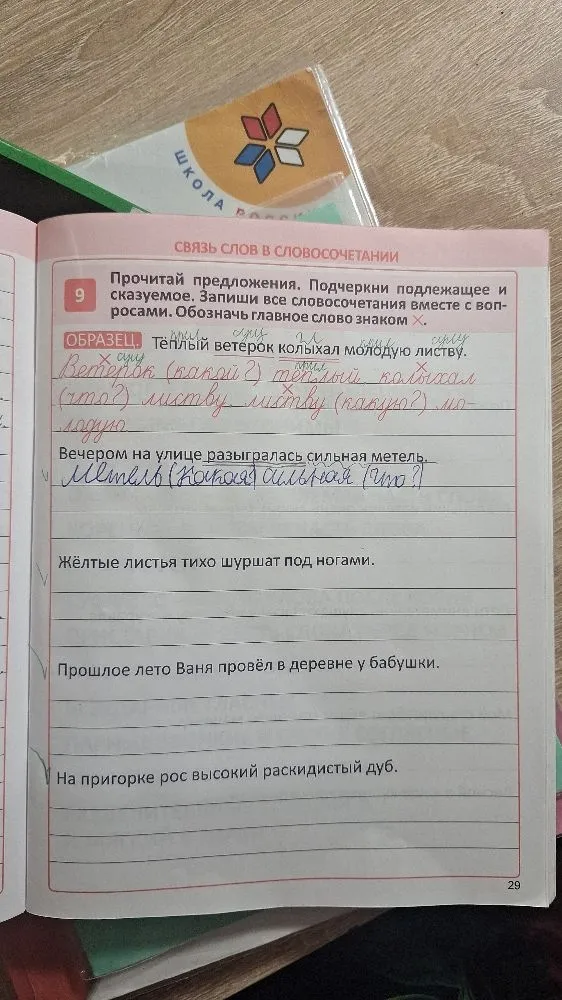 ШКОЛА РОССИИ
СВЯЗЬ СЛОВ В СЛОВОСОЧЕТАНИИ
9
Прочитай предложения. Подчеркни подлежащее и
сказуемое. Запиши все словосочетания вместе с воп-
росами. Обозначь главное слово знаком ×.
прил сущ гл прил сущ
ОБРАЗЕЦ. Тёплый ветерок колыхал молодую листву.
сущ прил
Ветерок (какой?) тёплый колыхал
(что?) листву листву (какую?) мо-
лодую
Вечером на улице разыгралась сильная метель.
Метель (какая) сильная (что?)
Жёлтые листья тихо шуршат под ногами.
Прошлое лето Ваня провёл в деревне у бабушки.
На пригорке рос высокий раскидистый дуб.
29